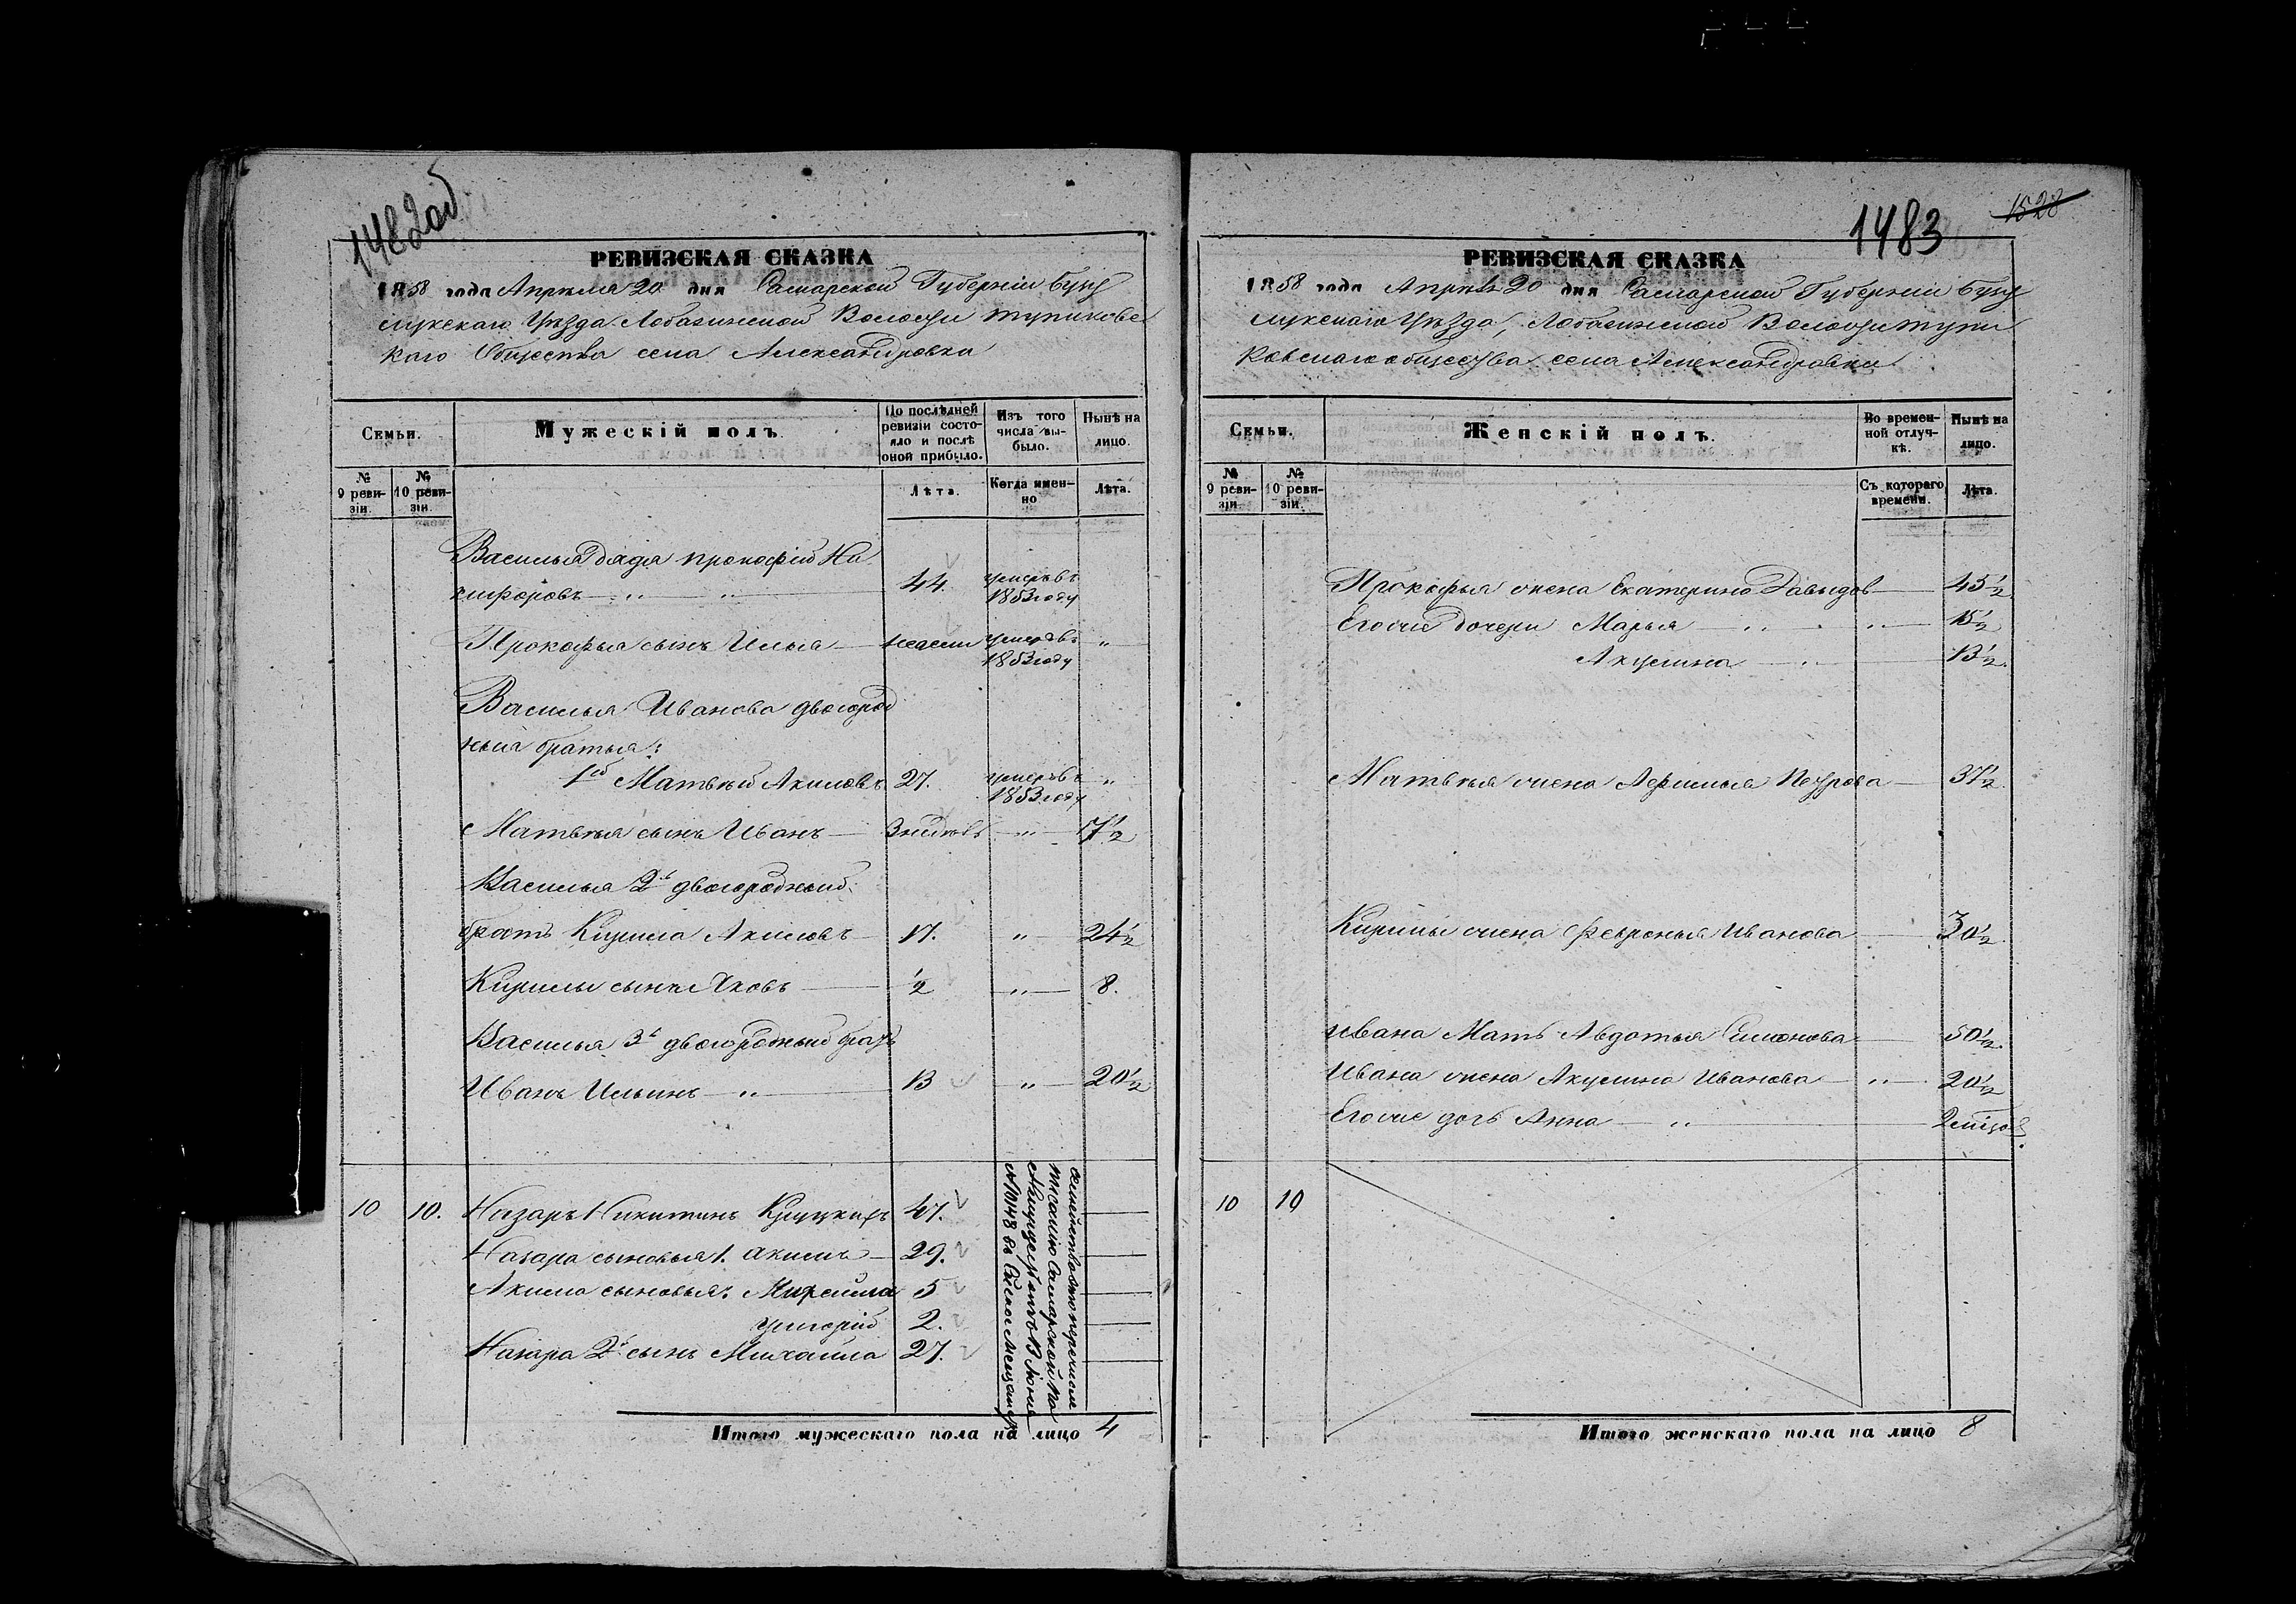 1482об
РЕВИЗСКАЯ СКАЗКА
1858 года Апреля 20 дня Самарской Губерніи Бузу
лукскаго Уѣзда Лобазинской Волости Тупиковс
каго Общества села Александровки
Семьи.
Мужескій полъ.
По послѣдней ревизіи состояло и послѣ оной прибыло.
Изъ того числа выбыло.
Нынѣ на лицо.
№ 9 ревизіи.
№ 10 ревизіи.
Лѣта.
Когда именно
Лѣта.
Василья дядя Прокофій Ни
кифоровъ — 44. умеръ въ 1853 году
Прокофья сынъ Илья — недели умеръ въ 1853 году "
Василья Иванова двоюрод
ныя братья:
1й Матвей Акимовъ 27. умеръ въ 1853 году "
Матвея сынъ Иванъ — " — 7½
Василья 2й двоюродный
братъ Кирила Акимовъ — 17. " 24½
Кирилы сынъ Яковъ — ½ " 8.
Василья 3й двоюродный братъ
Иванъ Ильинъ — " — 13 " 20½
10 10. Назаръ Никитинъ 47.
Назара сыновья 1. Акимъ — 29.
Акима сыновья: 5
Григорій 2.
Назара 2й сынъ Михайла 27.
семейство перечисле
Самарской Па
13 Июня
Итого мужескаго пола на лицо 4
1483
1528
РЕВИЗСКАЯ СКАЗКА
1858 года Апреля 20 дня Самарской Губерніи Бузу
лукскаго Уѣзда, Лобазинской Волости Тупи
ковскаго общества села Александровки
Семьи.
Женскій полъ.
Во временной отлучкѣ.
Нынѣ на лицо.
№ 9 ревизіи
№ 10 ревизіи.
Съ котораго времени.
Лѣта.
Прокофья жена Екатерина Давыдов — 45½
Его же дочери Марья — " — " — 15½
Акулина — " — 13½
Матвея жена Петрова — 37½
Кирилы жена Февронья Иванова — 30½
Ивана Мать Авдотья Симонова — 50½
Ивана жена Акулина Иванова — " — 20½
Его же дочь Анна — " —
10 10
Итого женскаго пола на лицо 8